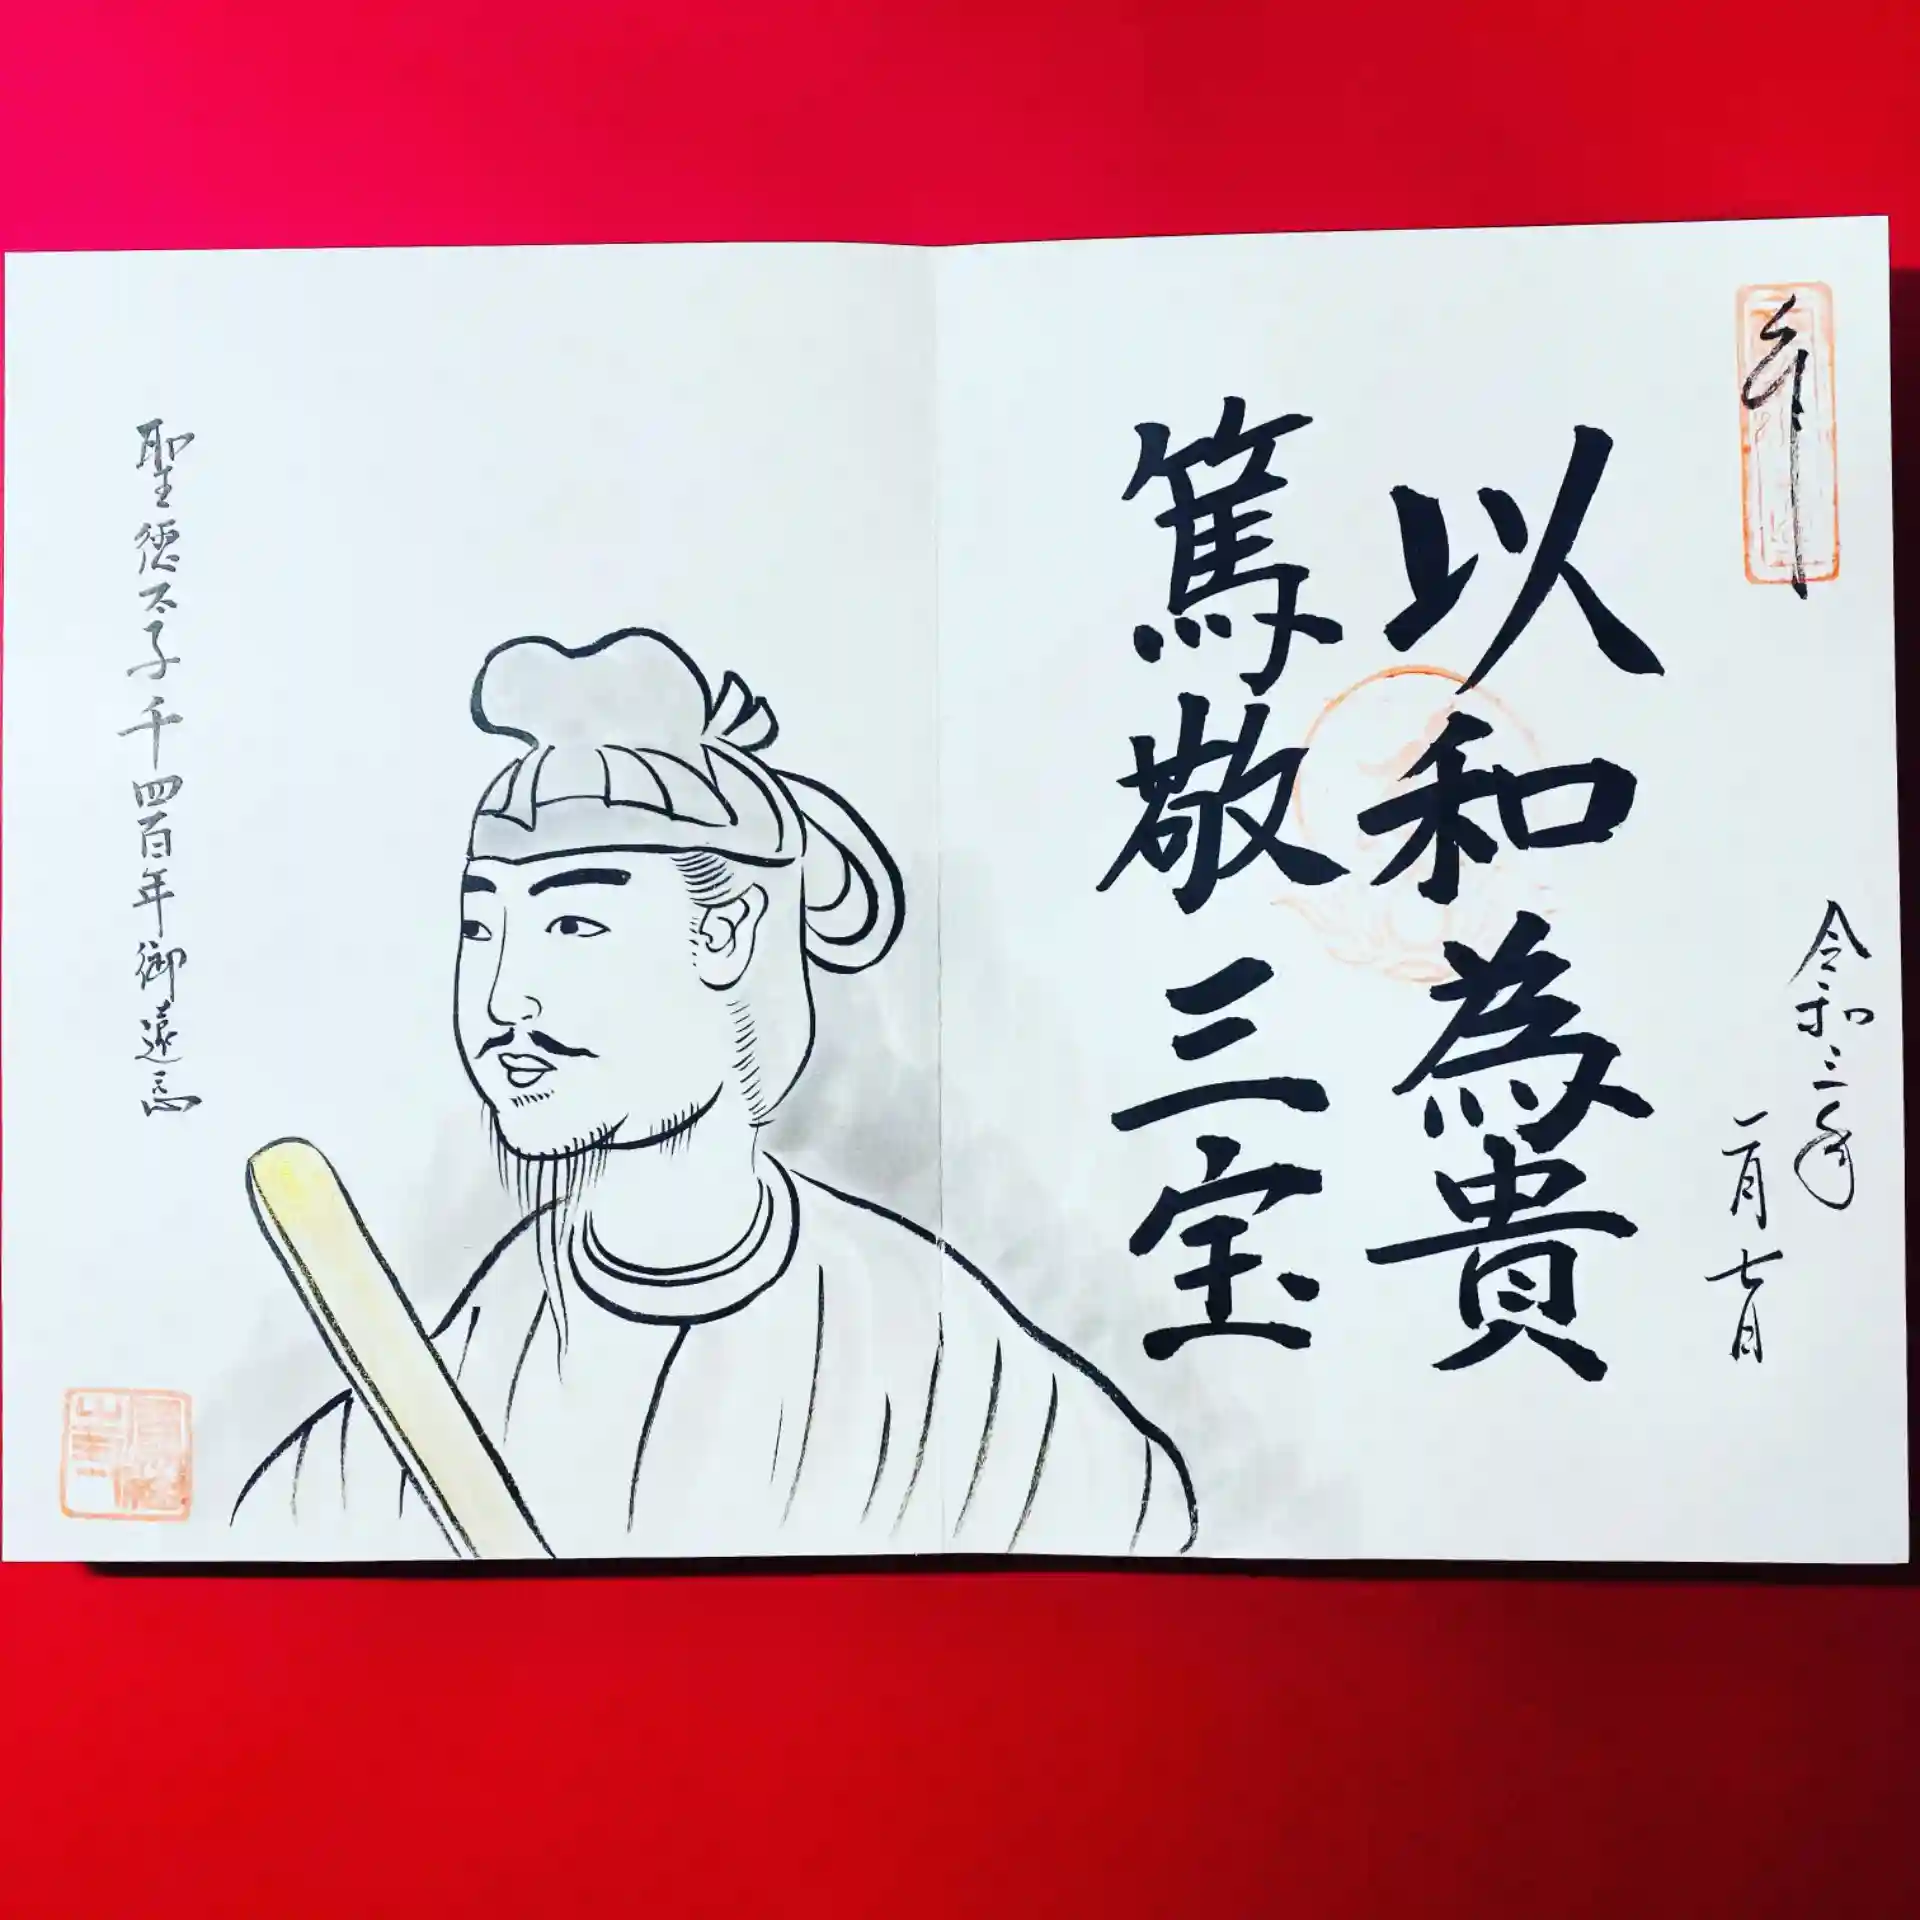 奉
令和三年
一月七日
以和為貴
篤敬三宝
聖徳太子千四百年御遠忌